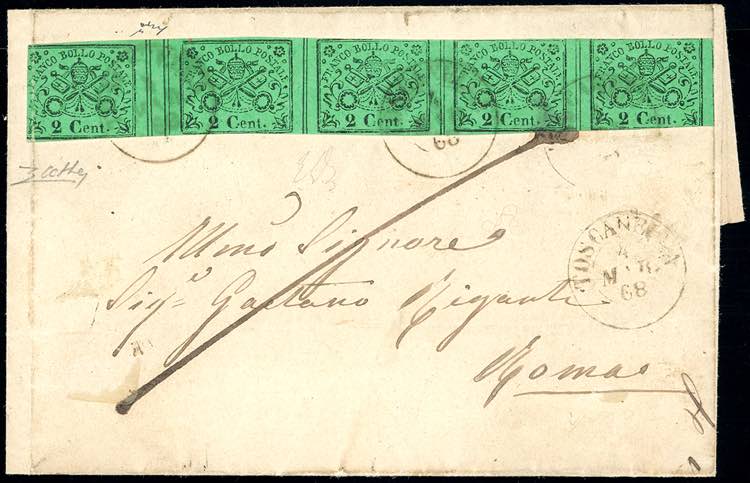 FRANCO BOLLO POSTALE FRANCO BOLLO POSTALE FRANCO BOLLO POSTALE FRANCO BOLLO POSTALE FRANCO BOLLO POSTALE
2 Cent. 2 Cent. 2 Cent. 2 Cent. 2 Cent.
68
TOSCANELLA
4
MAR.
68
Illmo Signore
Sigr. Gaetano Giganti
Roma